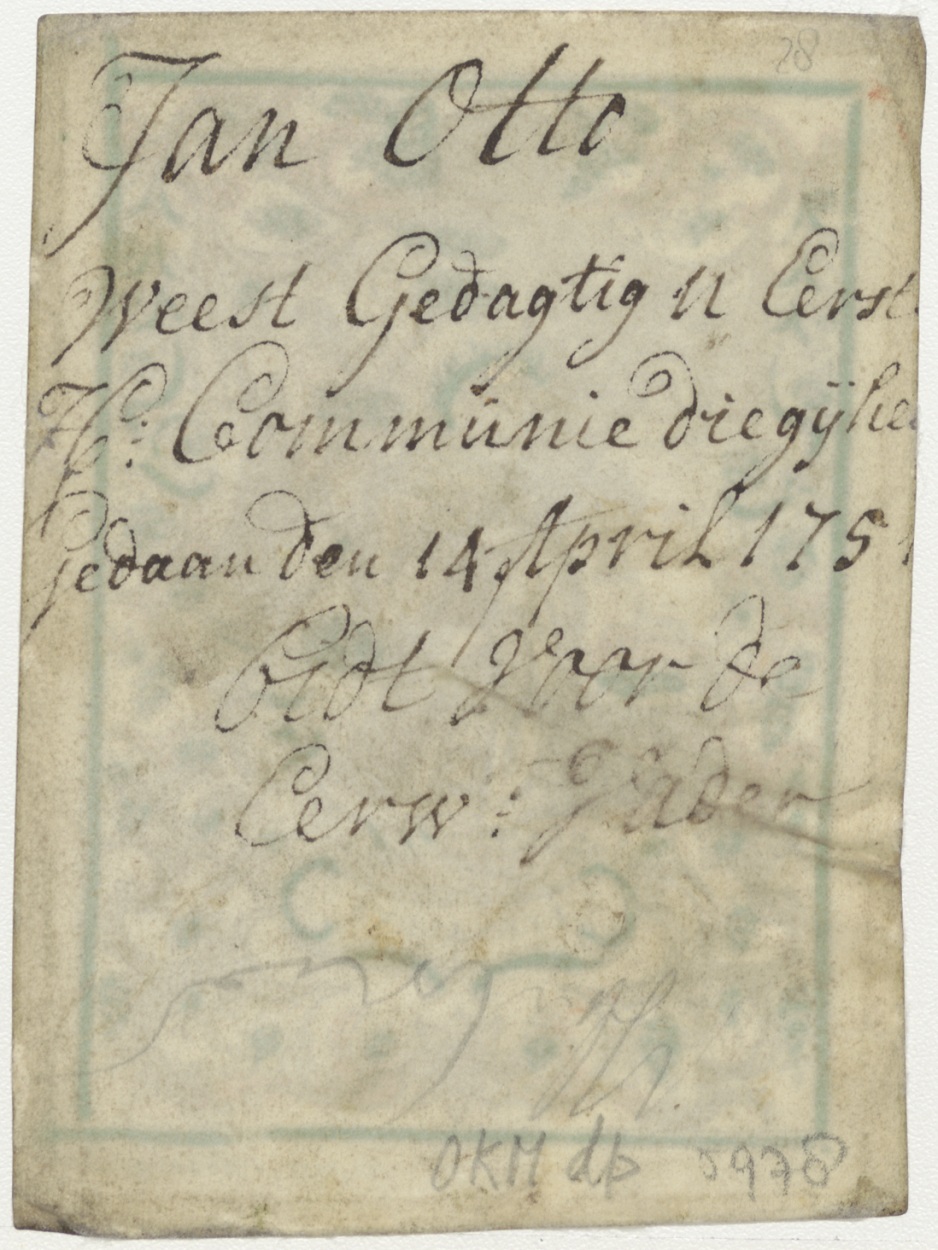 28
Jan Otto
Weest Gedagtig u Eerst
H: Communie die gij he
Gedaan den 14 April 175
Bidt Voor de
Eerw: Vader
OKM dp 5978